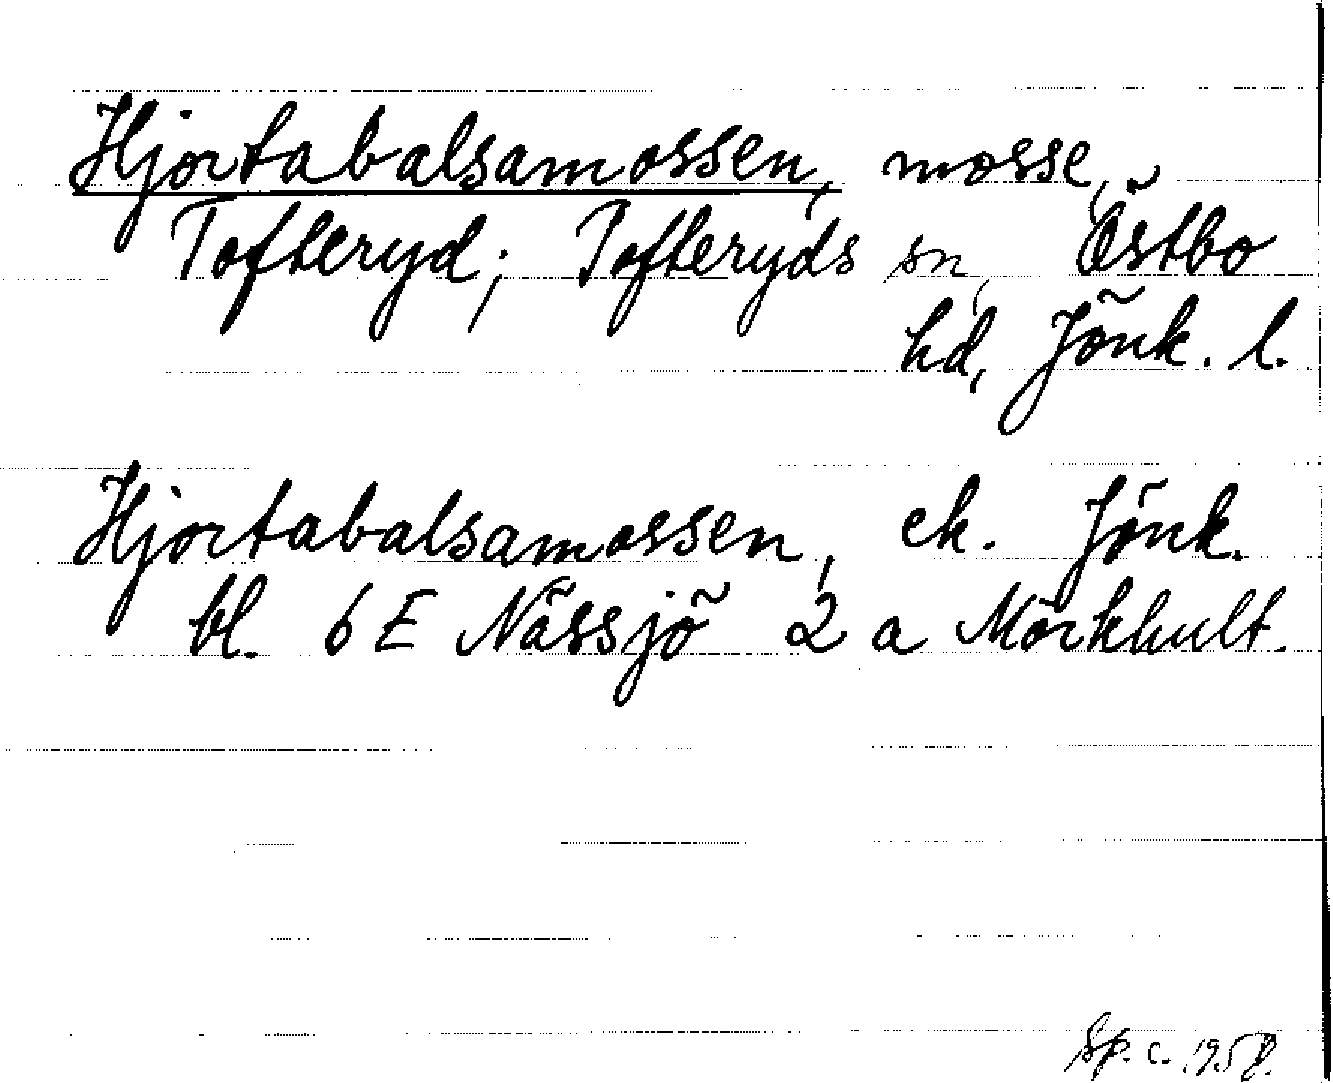 Hjortabalsamossen, mosse,
Tofteryd; Tofteryds sn, Östbo
hd, Jönk. l.
Hjortabalsamossen, ek. Jönk.
bl. 6 E Nässjö 2 a Mörkhult.
Sp. c.